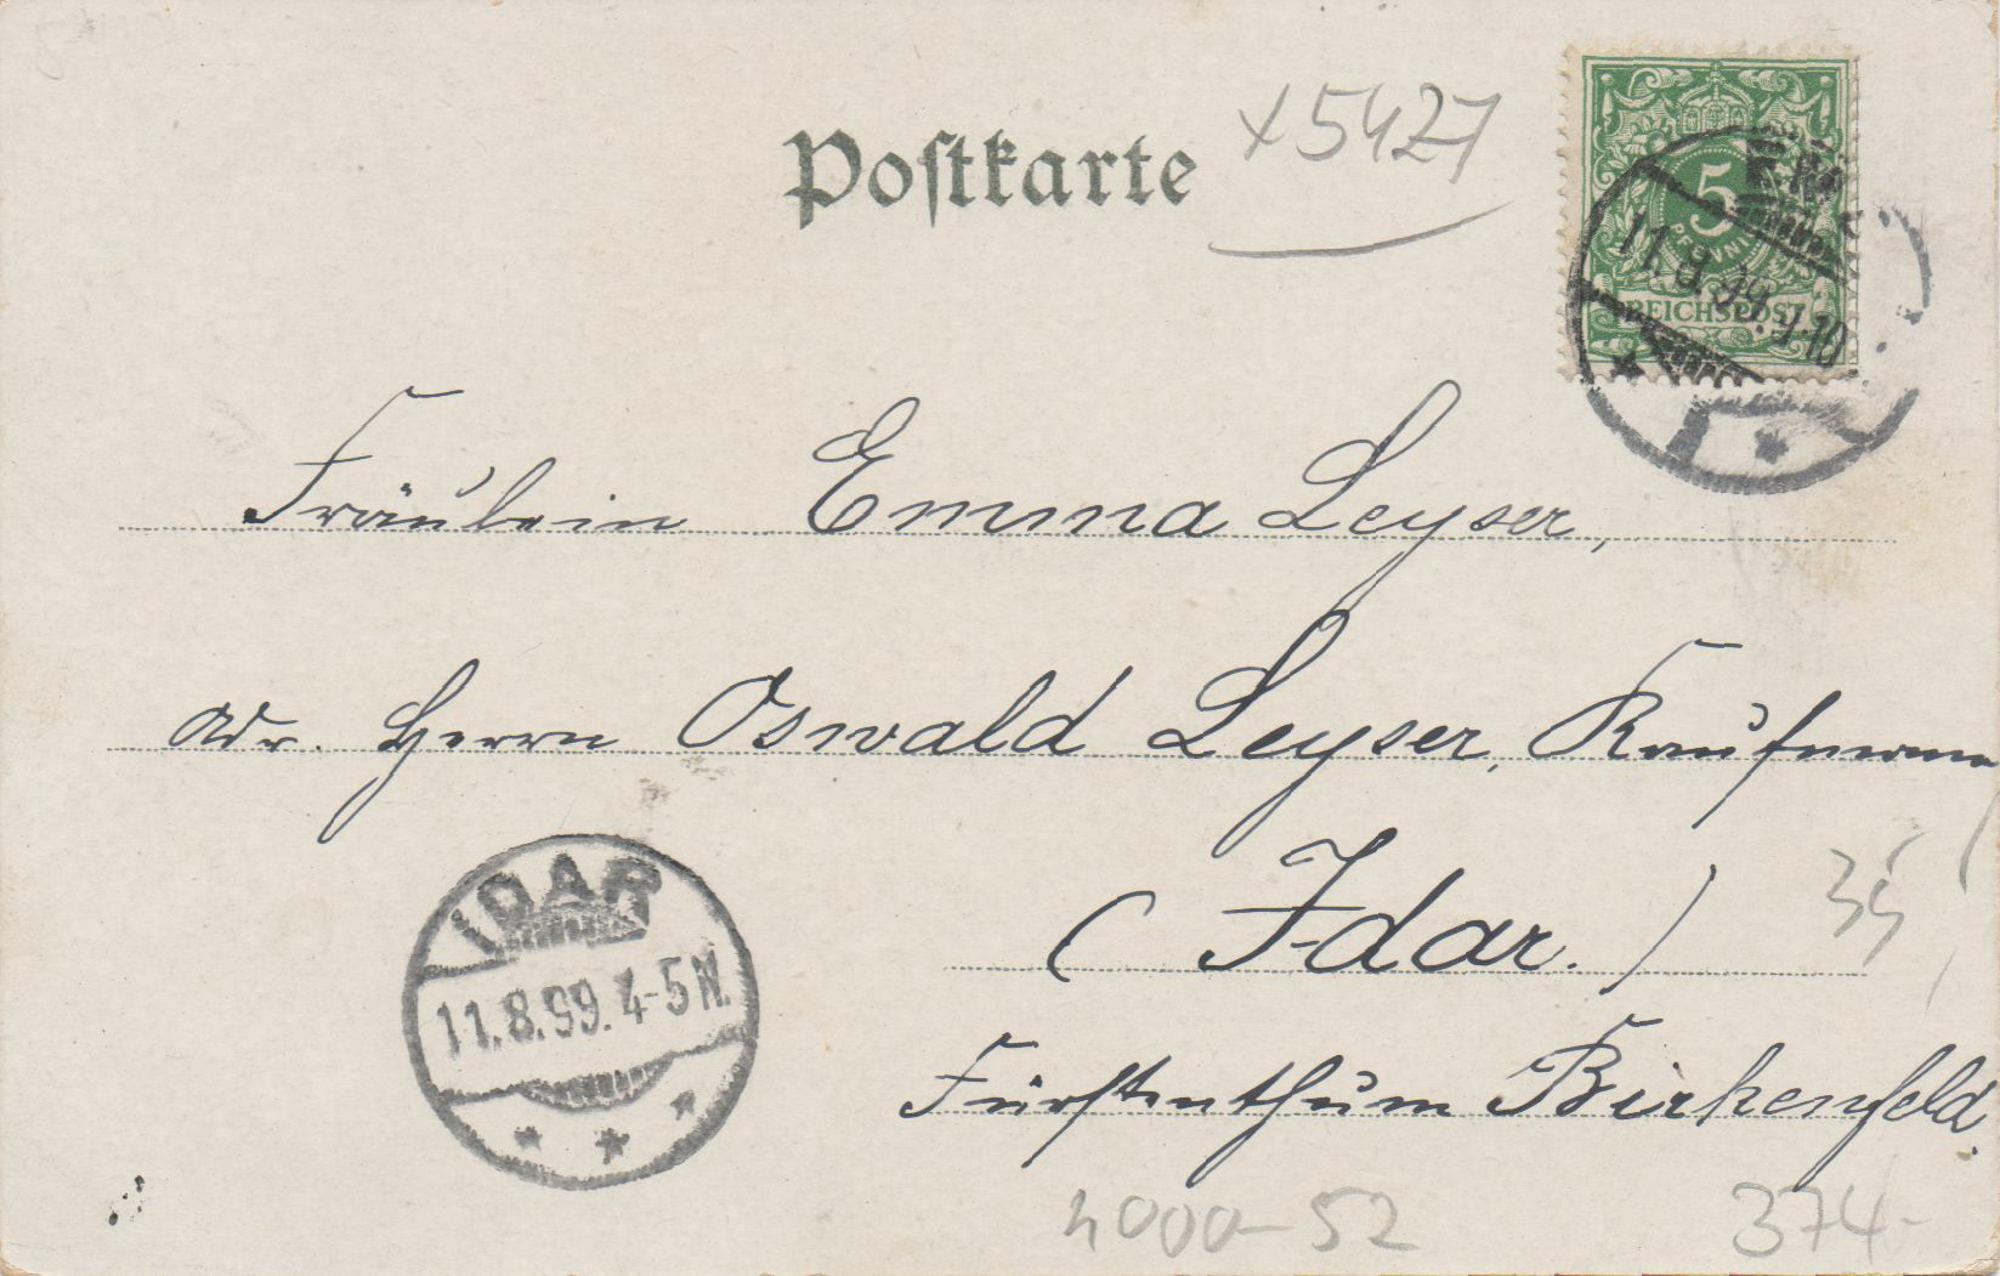 Postkarte
x 5427
5
PFENNIG
REICHSPOST
11.8.99. 9-10
Fräulein Emma Leyser,
Adr. Herrn Oswald Leyser, Kaufmann
(Idar.)
35
IDAR
11.8.99. 4-5 N.
Fürstenthum Birkenfeld.
4000-52
374-